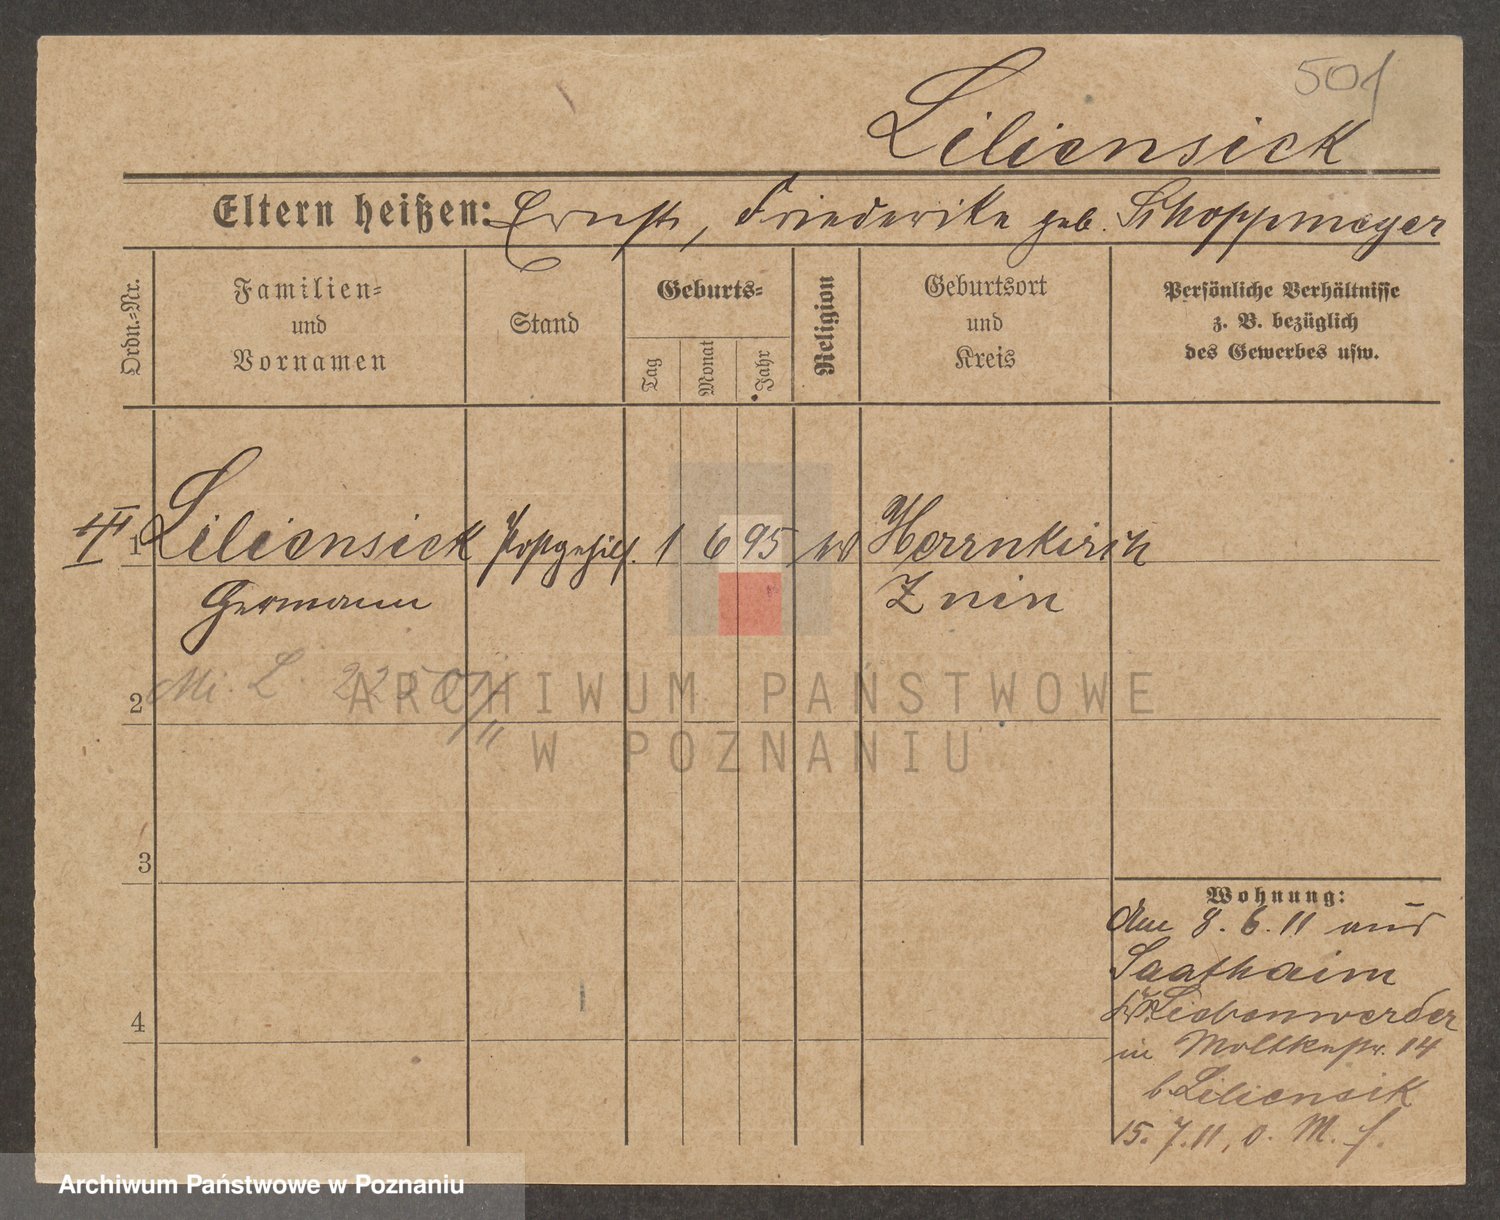 501
Liliensiek
Eltern heißen: Ernst, Friederike geb. Schoppmeyer
Ordn.-Nr.
Familien-
und
Vornamen
Stand
Geburts-
Tag
Monat
Jahr
Religion
Geburtsort
und
Kreis
Persönliche Verhältnisse
z. B. bezüglich
des Gewerbes usw.
1 Liliensiek Postgehilf. 1 6 95 Herrnkirch
Hermann Znin
2
3
4
Wohnung:
Am 8. 6. 11 aus
Saathain
Kr. Liebenwerder
in Moltkestr. 14
b Liliensik
15. 7. 11, o. M. f.
ARCHIWUM PAŃSTWOWE
W POZNANIU
Archiwum Państwowe w Poznaniu